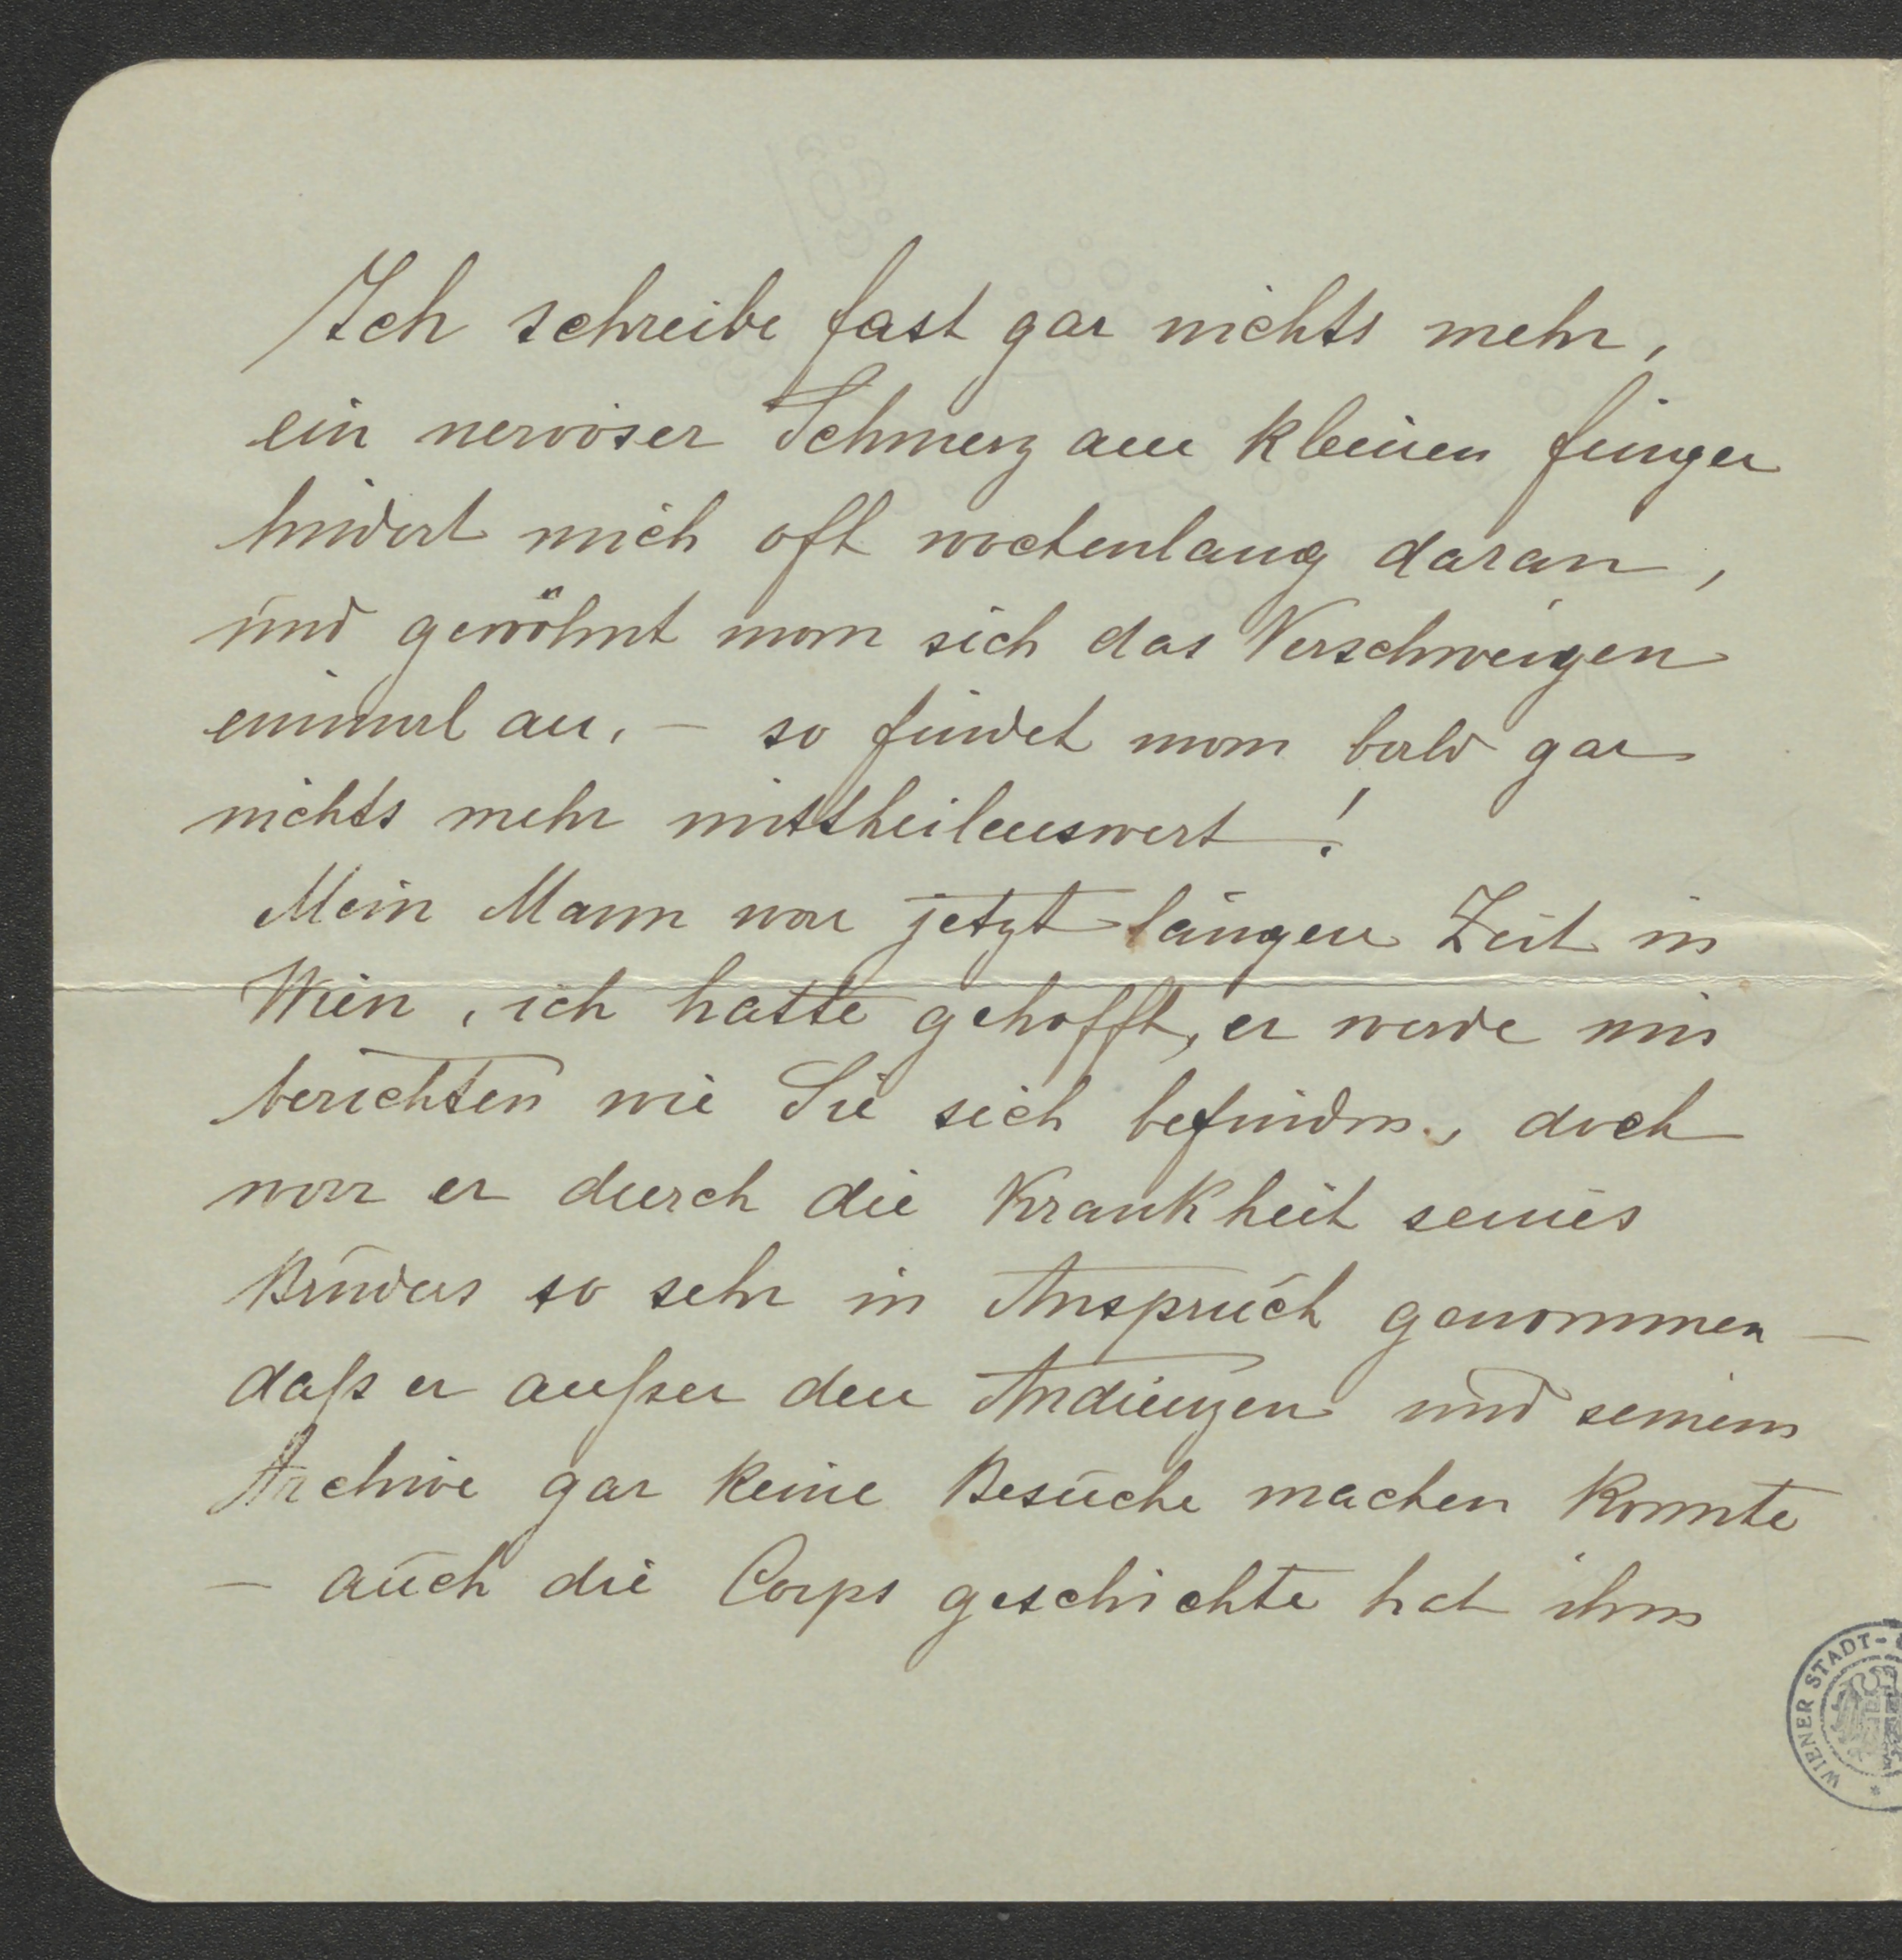 Ich schreibe fast gar nichts mehr,
ein nervöser Schmerz am kleinen Finger
hindert mich oft wochenlang daran,
und gewöhnt man sich das Verschweigen
einmal an, – so findet man bald gar
nichts mehr mittheilenswert!
Mein Mann war jetzt längere Zeit in
Wien, ich hatte gehofft, er werde mir
berichten wie Sie sich befinden, doch
war er durch die Krankheit seines
Bruders so sehr in Anspruch genommen –
daß er außer den und seinem
Archive gar keine Besuche machen konnte
– auch die Corps geschichte hat ihm
WIENER STADT-